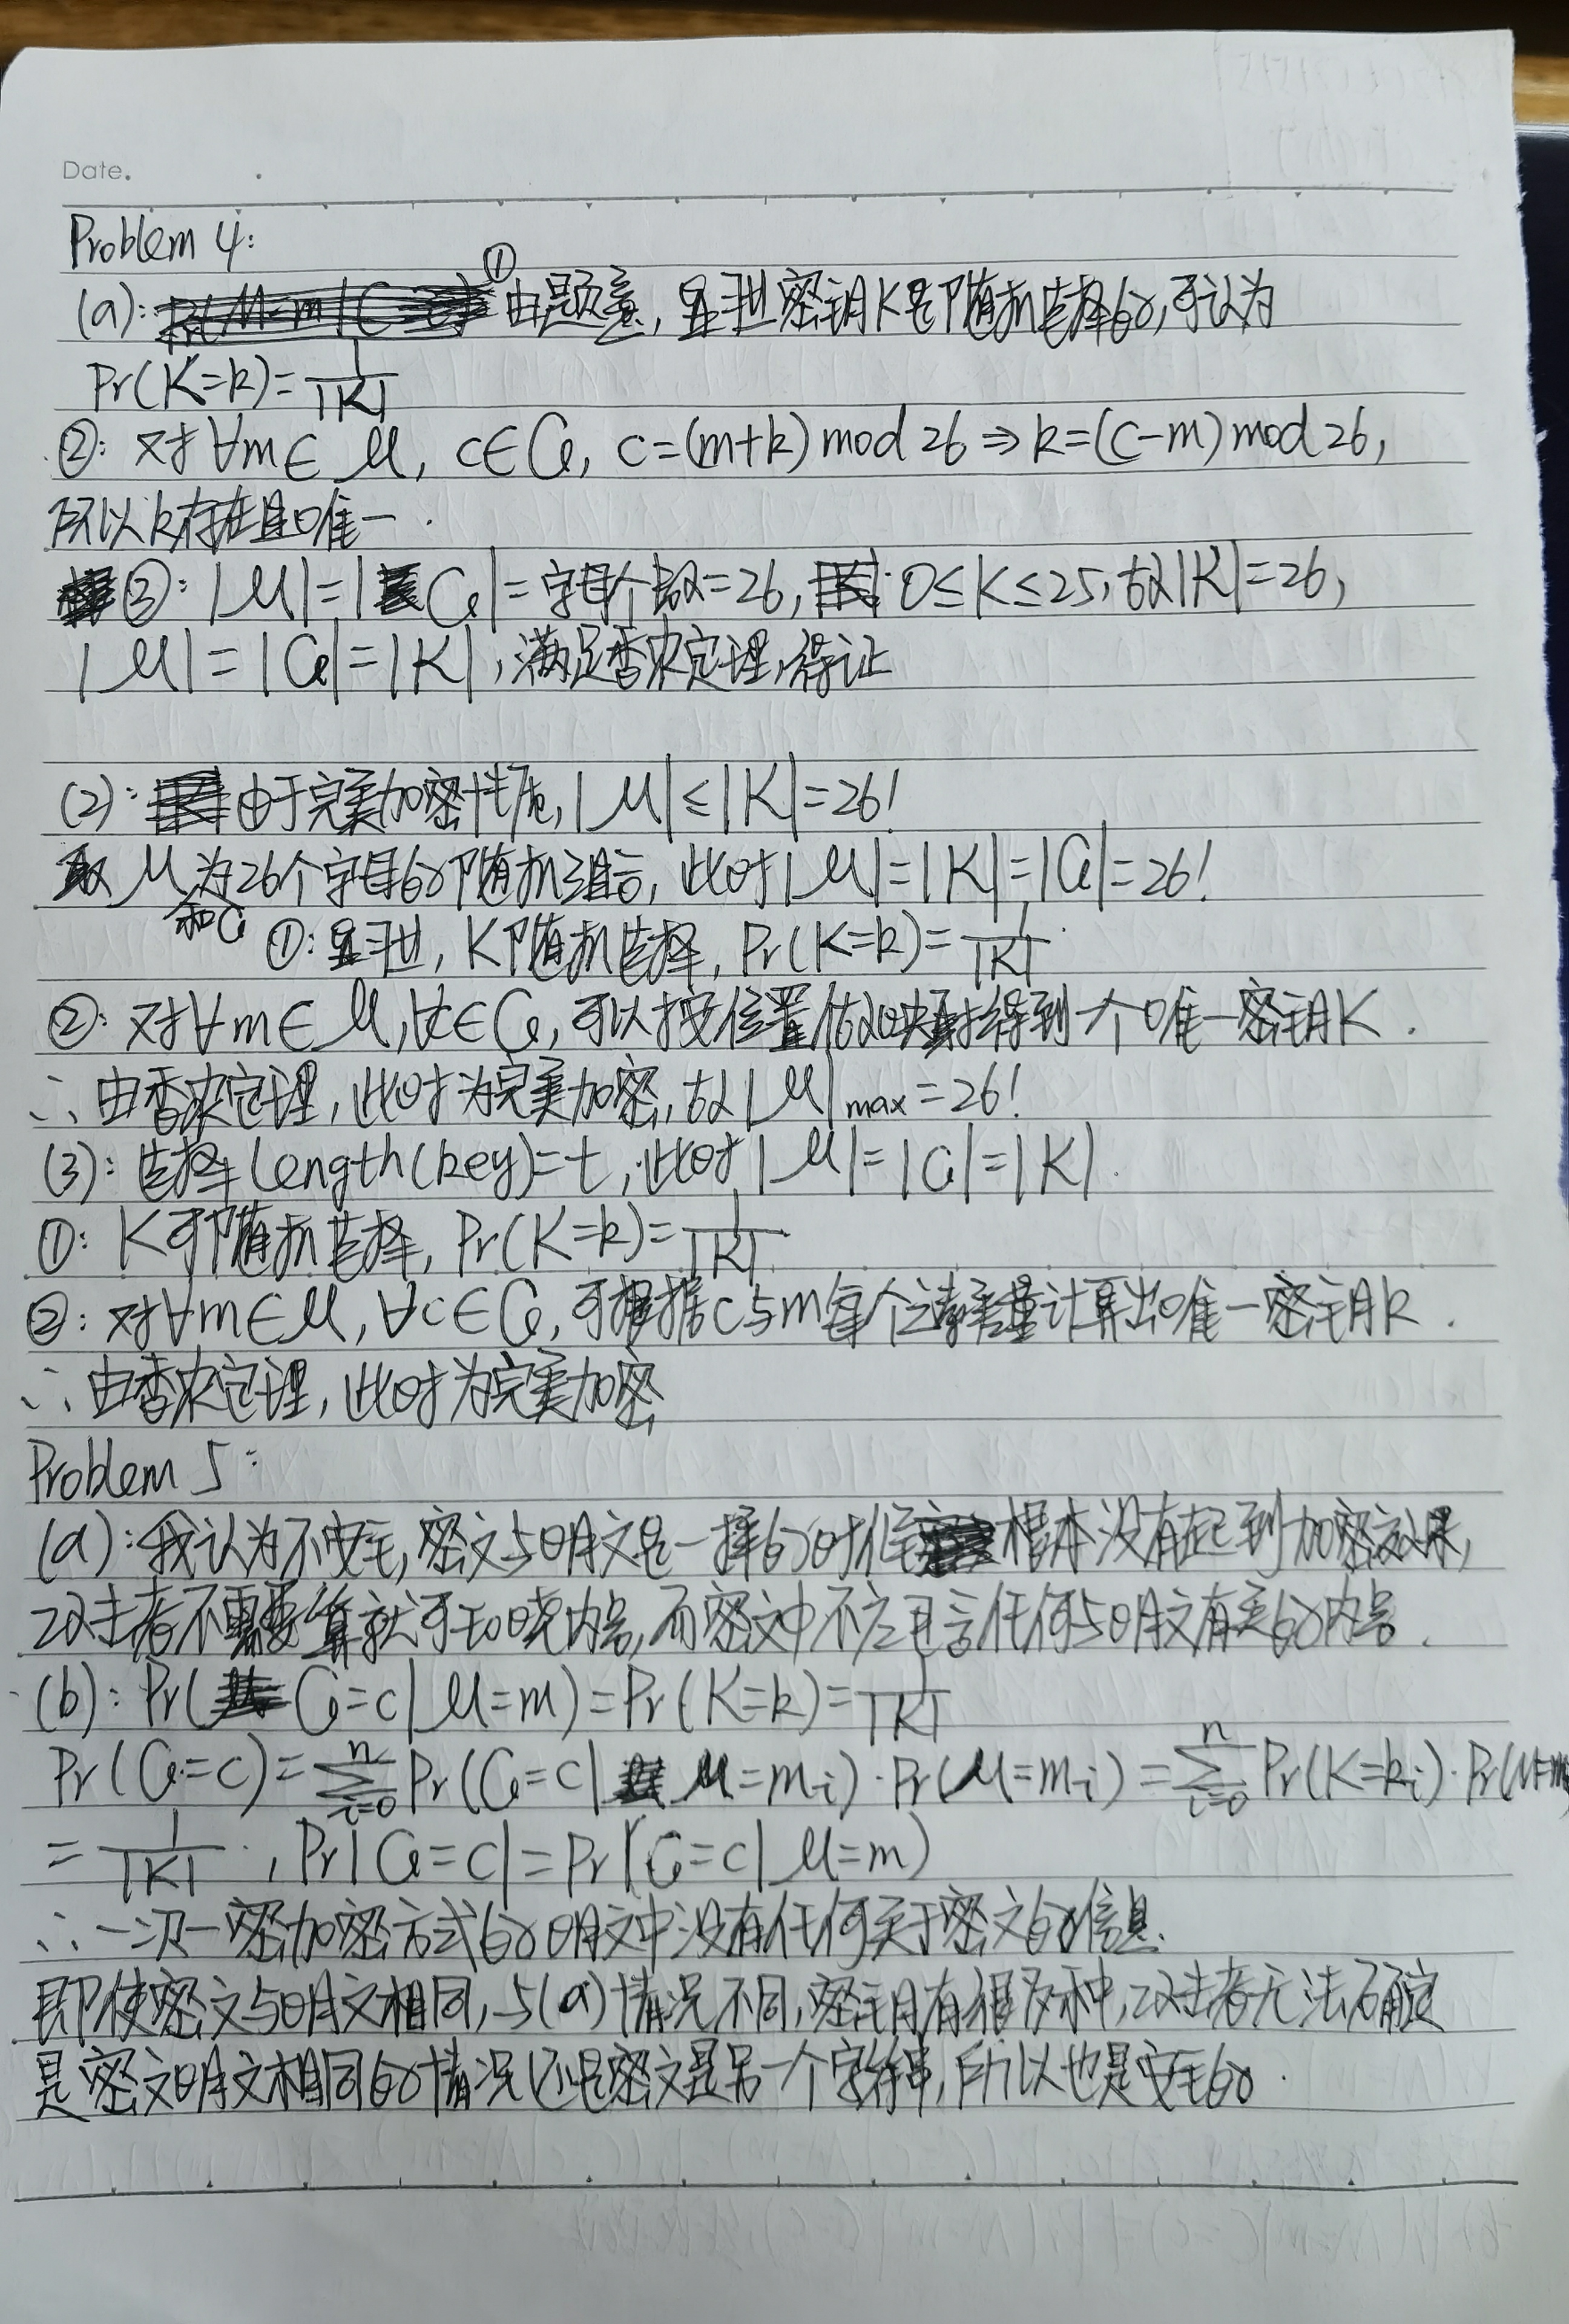 Date.
Problem 4:
(a): ①由题意, 显然密钥K是随机选择的, 可认为
Pr(K=k)=1/|K|
②: 对∀m∈M, c∈C, c=(m+k) mod 26 ⇒ k=(c-m) mod 26,
所以k存在且唯一.
③: |M|=|C|=字母个数=26, 0≤K≤25, 故|K|=26,
|M|=|C|=|K|, 满足香农定理, 得证
(2): 由于完美加密性质, |M|≤|K|=26!
取M和C为26个字母的随机组合, 此时|M|=|K|=|C|=26!
①: 显然, K随机选择, Pr(K=k)=1/|K|
②: 对∀m∈M, ∀c∈C, 可以按位置做映射得到一个唯一密钥K.
∴由香农定理, 此时为完美加密, 故|M|max=26!
(3): 选择length(key)=t, 此时|M|=|C|=|K|.
①: K可随机选择, Pr(K=k)=1/|K|
②: 对∀m∈M, ∀c∈C, 可根据c与m每个计算出唯一密钥k.
∴由香农定理, 此时为完美加密
Problem 5:
(a): 我认为不安全, 密文与明文是一样的时候根本没有起到加密效果,
攻击者不需要算就可知晓内容, 而密文中不应包含任何与明文有关的内容.
(b): Pr(C=c|M=m)=Pr(K=k)=1/|K|
Pr(C=c)=∑_{i=0}^{n} Pr(C=c|M=mi)·Pr(M=mi)=∑_{i=0}^{n} Pr(K=ki)·Pr(M=m
=1/|K|, Pr|C=c|=Pr(C=c|M=m)
∴一次一密加密方式的明文中没有任何关于密文的信息.
即使密文与明文相同, 与(a)情况不同, 密钥有很多种, 攻击者无法确定
是密文明文相同的情况还是密文是另一个字符串, 所以也是安全的.